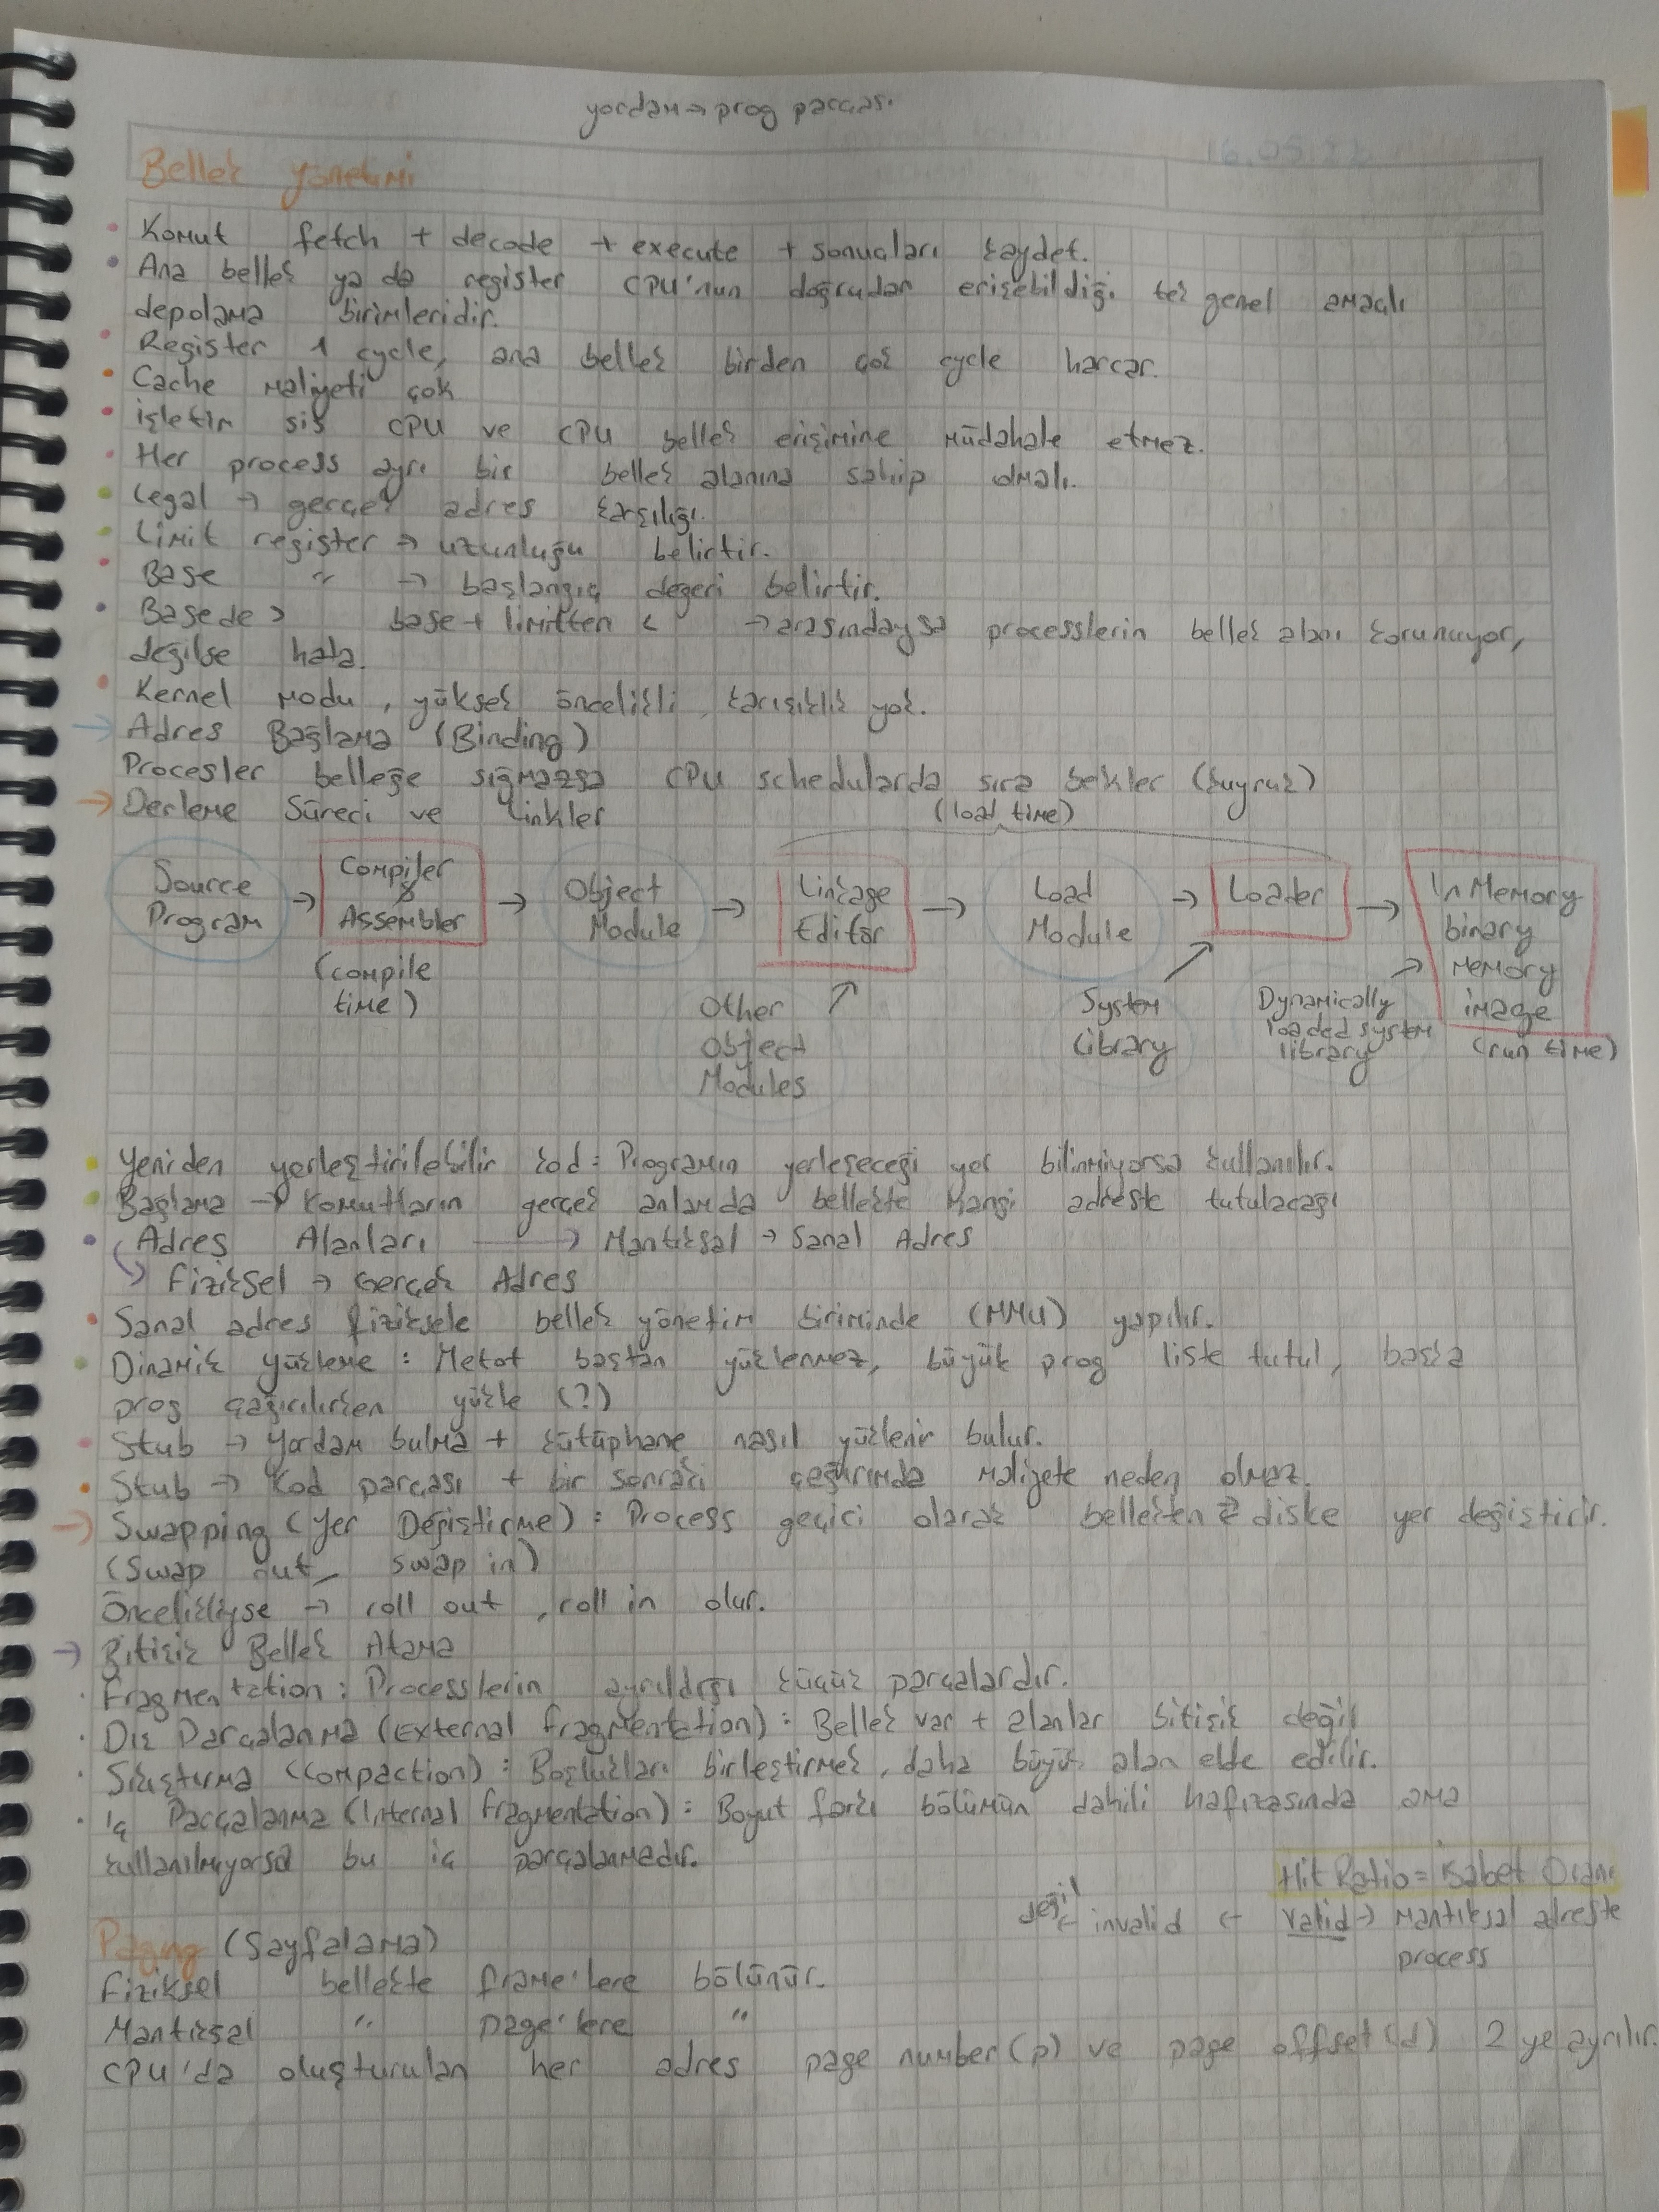 yordam → prog parçası
16.05.22
Bellek yönetimi
Komut fetch + decode + execute + sonuçları kaydet.
Ana bellek ya da register CPU'nun doğrudan erişebildiği tek genel amaçlı
depolama birimleridir.
Register 1 cycle, ana bellek birden çok cycle harcar.
Cache maliyeti çok
işletim sis CPU ve CPU bellek erişimine müdahale etmez.
Her process ayrı bir bellek alanına sahip olmalı.
Legal → gerçek adres karşılığı.
Limit register → uzunluğu belirtir.
Base " → başlangıç değeri belirtir.
Basede > base + limitten < → arasındaysa processlerin bellek alanı korunuyor,
değilse hata.
Kernel modu, yüksek öncelikli, karışıklık yok.
→ Adres Bağlama (Binding)
Procesler belleğe sığmazsa CPU schedularda sıra bekler (kuyruk)
→ Derleme Süreci ve Linkler
(load time)
Source Program → Compiler & Assembler → Object Module → Linkage Editör → Load Module → Loader → In Memory binary memory image
(compile time)
Other Object Modules
System Library
Dynamically loaded system library
(run time)
Yeniden yerleştirilebilir kod : Programın yerleşeceği yer bilinmiyorsa kullanılır.
Bağlama → Komutların gerçek anlamda bellekte hangi adreste tutulacağı
Adres Alanları → Mantıksal → Sanal Adres
Fiziksel → Gerçek Adres
Sanal adres fiziksele bellek yönetim biriminde (MMU) yapılır.
Dinamik yükleme : Metot baştan yüklenmez, büyük prog liste tutul, başka
prog çağırılırken yükle (?)
Stub → Yordam bulma + kütüphane nasıl yüklenir bulur.
Stub → Kod parçası + bir sonraki çağırımda maliyete neden olmaz.
→ Swapping (Yer Değiştirme) : Process geçici olarak bellekten ⇄ diske yer değiştirir.
(Swap out, swap in)
Öncelikliyse → roll out, roll in olur.
→ Bitişik Bellek Atama
Fragmentation : Processlerin ayrıldığı küçük parçalardır.
Dış Parçalanma (External fragmentation) : Bellek var + alanlar bitişik değil
Sıkıştırma (Compaction) : Boşlukları birleştirmek, daha büyük alan elde edilir.
İç Parçalanma (Internal fragmentation) : Boyut farkı bölümün dahili hafızasında ama
kullanılmıyorsa bu iç parçalanmadır.
Hit Ratio = isabet Oranı
değil ← invalid ← valid → mantıksal adreste
process
Paging (Sayfalama)
Fiziksel bellekte frame'lere bölünür.
Mantıksal " page'lere "
CPU'da oluşturulan her adres page number(p) ve page offset(d) 2 ye ayrılır.